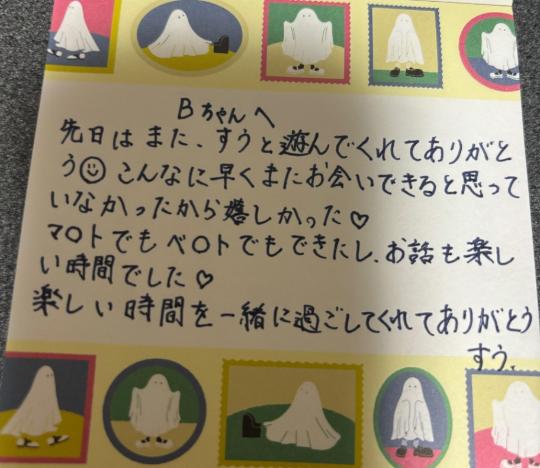 Bちゃんへ
先日はまた、すうと遊んでくれてありがと
う☺こんなに早くまたお会いできると思って
いなかったから嬉しかった♡
マ〇トでもベ〇トでもできたし、お話も楽し
い時間でした♡
楽しい時間を一緒に過ごしてくれてありがとう
すう、